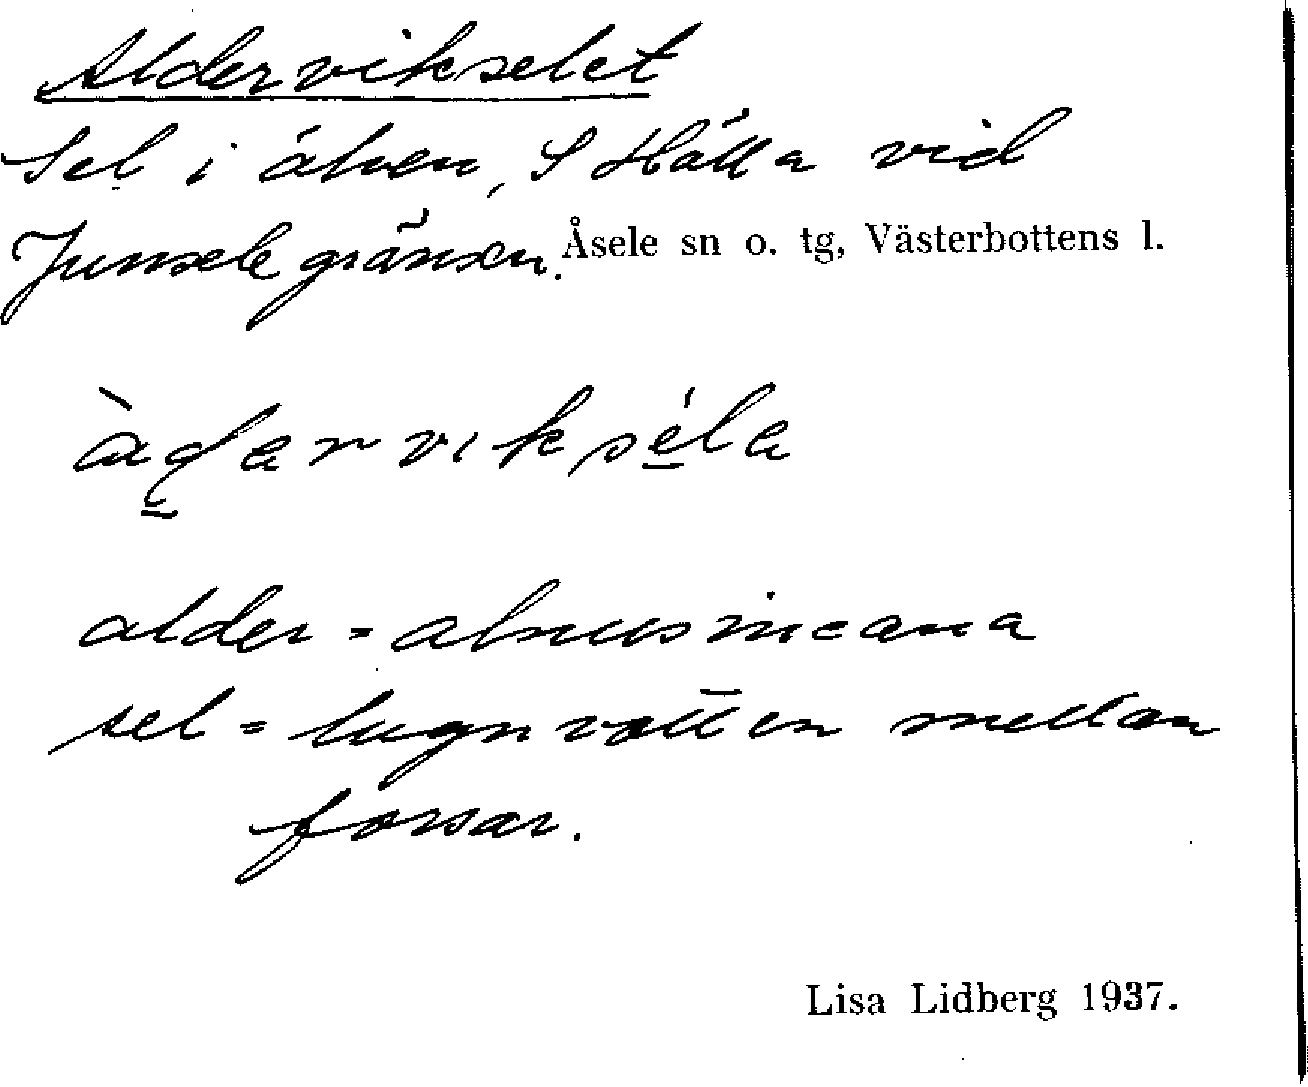 Aldervikselet
Sel i älven, S Hälla vid
Junselegränsen. Åsele sn o. tg, Västerbottens l.
àḏerviksé̱la
alder = alnus incana
sel = lugnvatten mellan
forsar.
Lisa Lidberg 1937.